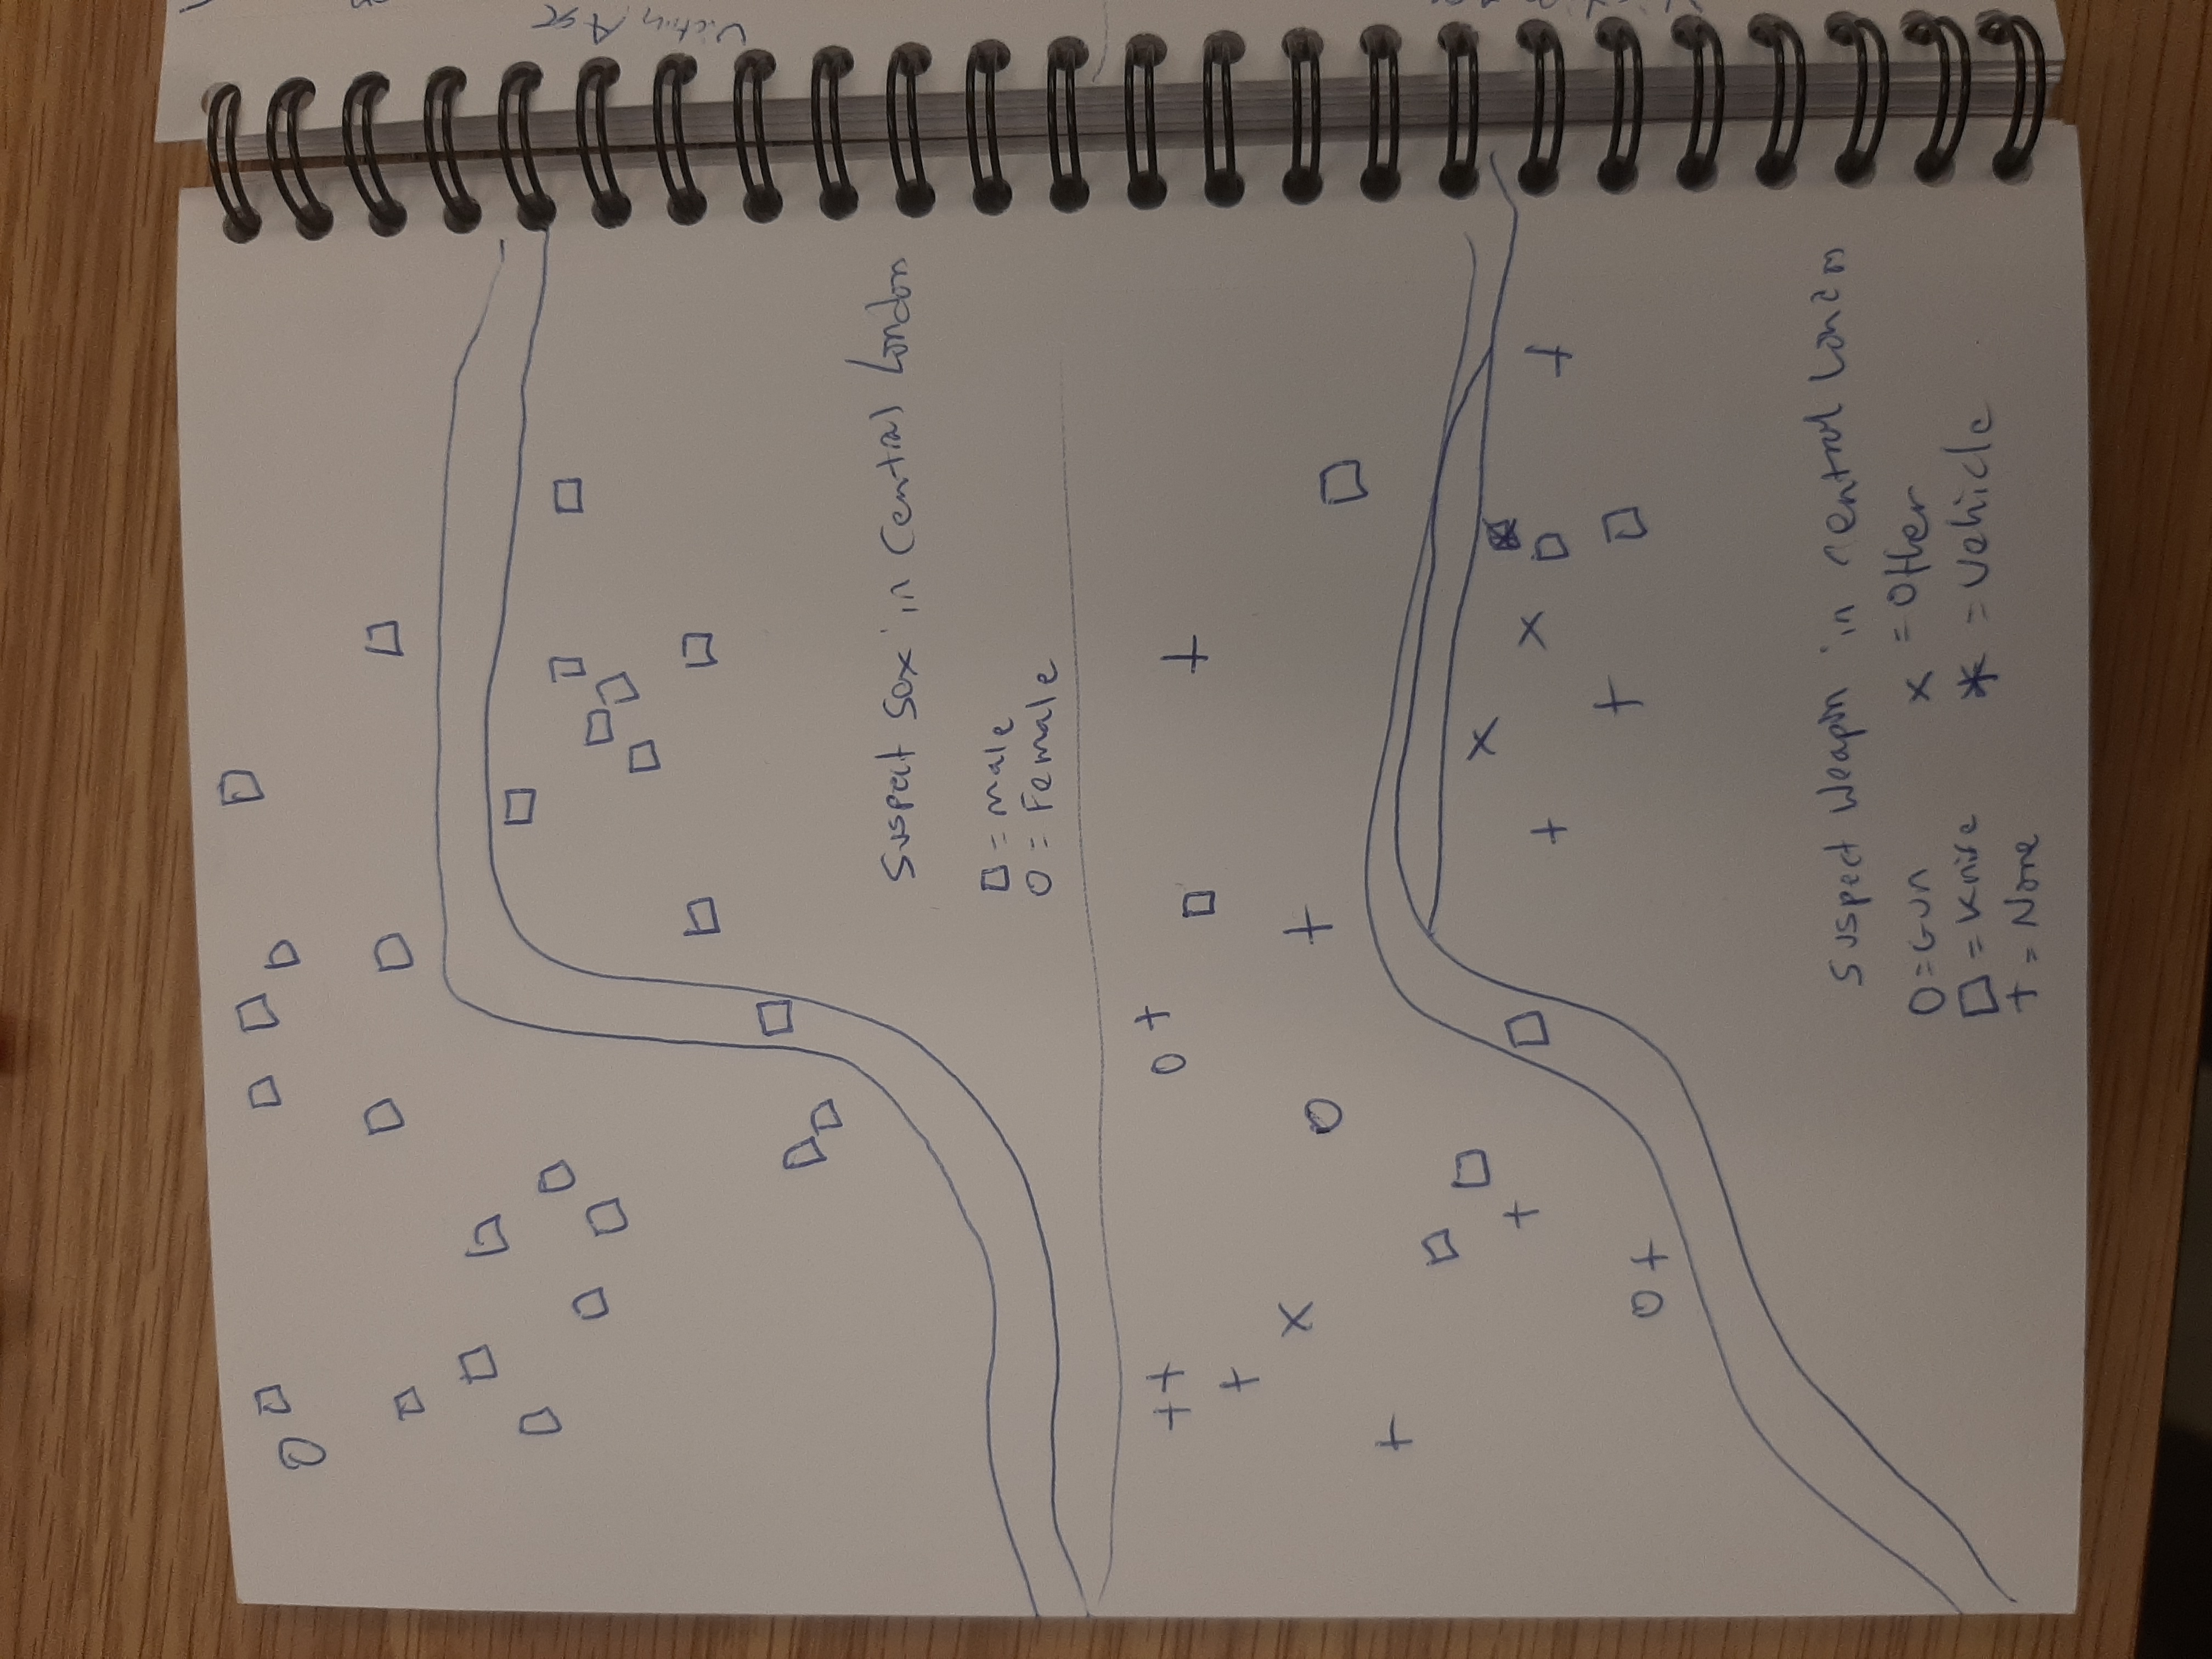 Victim Age
Suspect Sex in Central London
□ = male
O = Female
Suspect Weapn in central London
O = Gun
□ = Knife
+ = None
x = Other
* = Vehicle